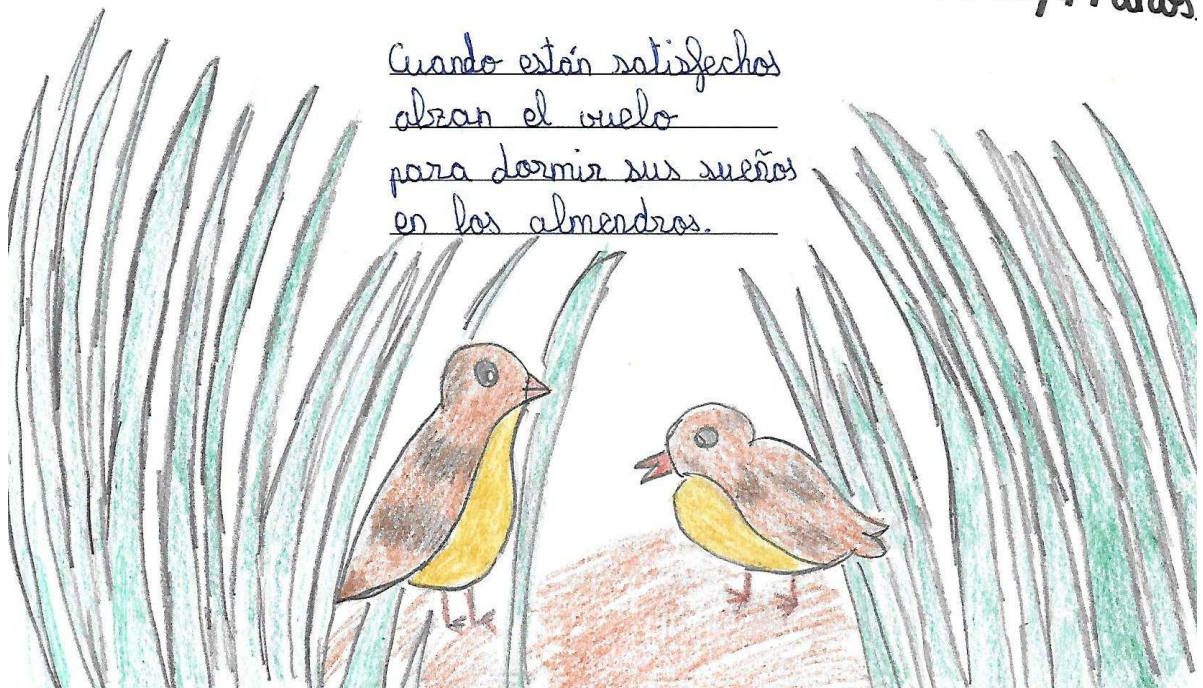 Cuando están satisfechos
alzan el vuelo
para dormir sus sueños
en los almendros.